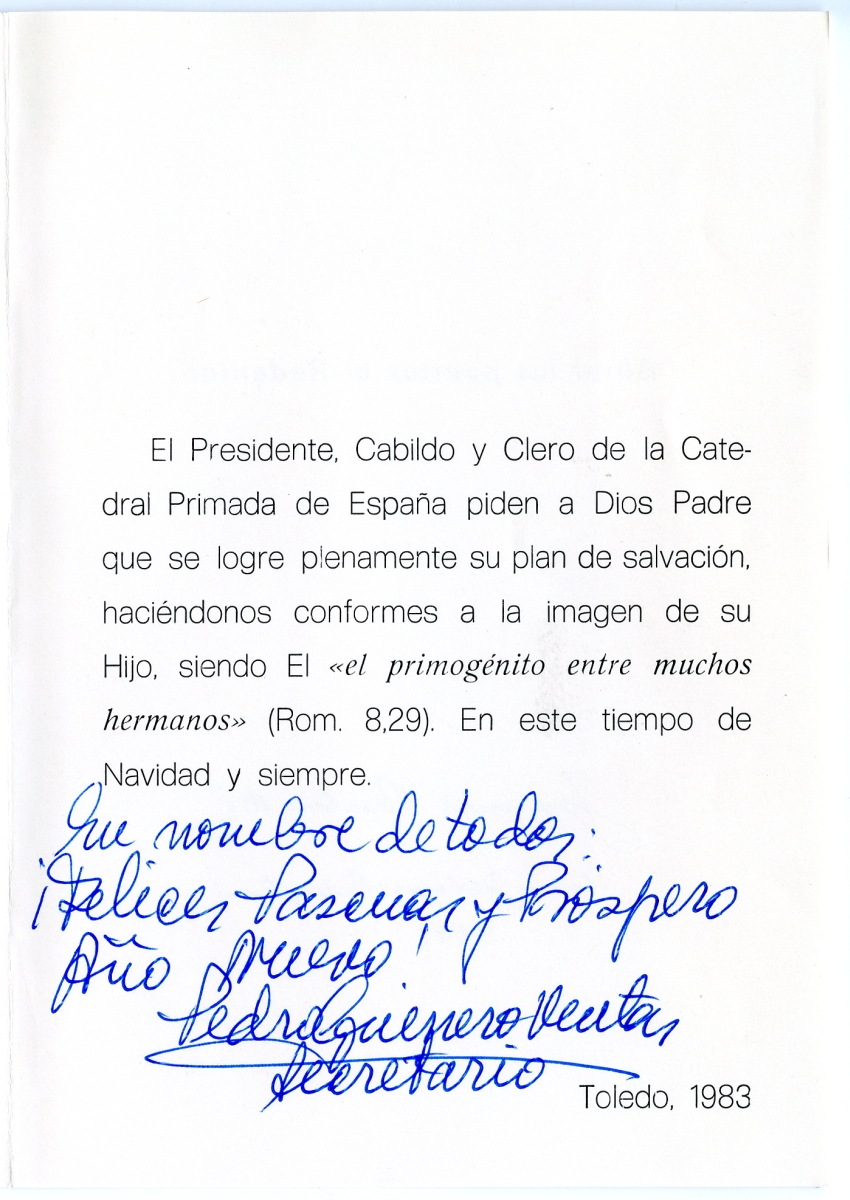 El Presidente, Cabildo y Clero de la Cate-
dral Primada de España piden a Dios Padre
que se logre plenamente su plan de salvación,
haciéndonos conformes a la imagen de su
Hijo, siendo El «el primogénito entre muchos
hermanos» (Rom. 8,29). En este tiempo de
Navidad y siempre.
En nombre de todos:
¡Felices Pascuas y Próspero
Año Nuevo!
Pedro Guerrero Ventas
Secretario
Toledo, 1983